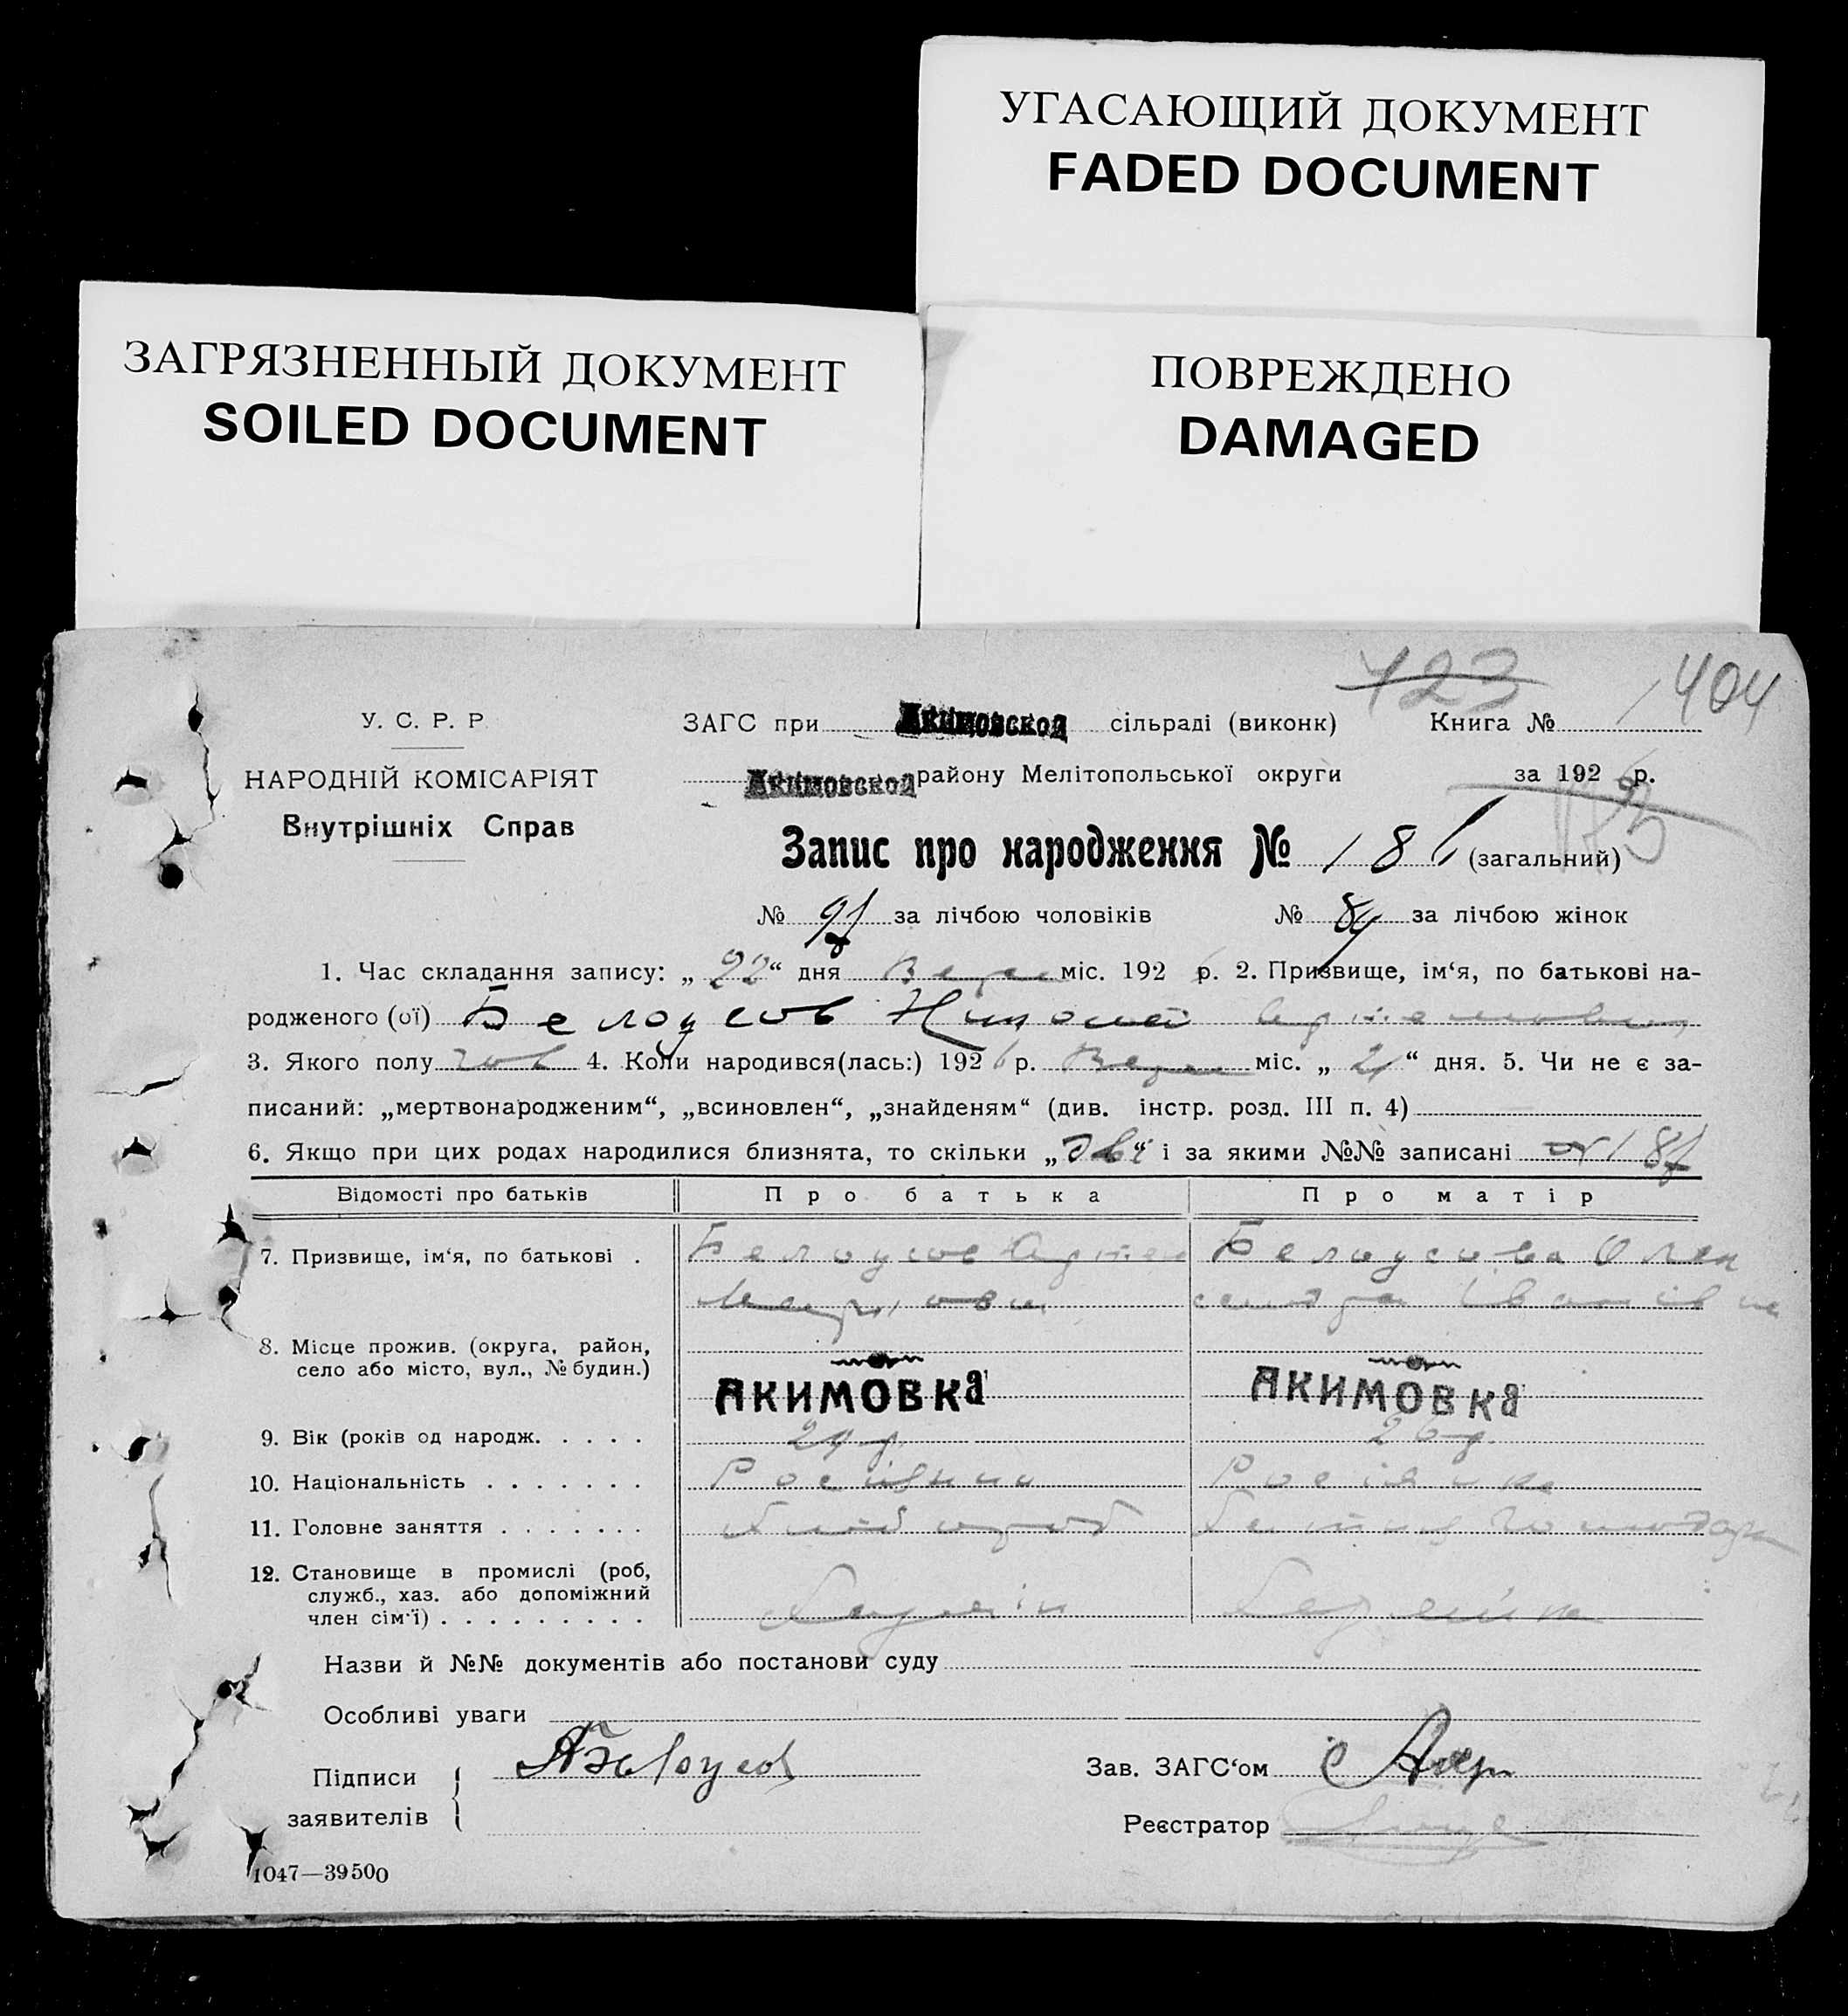 УГАСАЮЩИЙ ДОКУМЕНТ
FADED DOCUMENT
ЗАГРЯЗНЕННЫЙ ДОКУМЕНТ
SOILED DOCUMENT
ПОВРЕЖДЕНО
DAMAGED
123 404
У. С. Р. Р. ЗАГС при Акимовской сільраді (виконк) Книга №
НАРОДНІЙ КОМІСАРІЯТ Акимовской району Мелітопольської округи за 192 6 р.
Внутрішніх Справ
Запис про народження № 186 (загальний)
№ 97 за лічбою чоловіків № 89 за лічбою жінок
1. Час складання запису: „ 22 “ дня міс. 192 6 р. 2. Призвище, ім‘я, по батькові на-
родженого (ої) Белоусов Николай
3. Якого полу чол 4. Коли народився(лась:) 192 6 р. міс. „ 21 “ дня. 5. Чи не є за-
писаний: „мертвонародженим“, „всиновлен“, „знайденям“ (див. інстр. розд. III п. 4)
6. Якщо при цих родах народилися близнята, то скільки „ два “ і за якими №№ записані № 187
Відомості про батьків Про батька Про матір
7. Призвище, ім‘я, по батькові . Белоусов Артем Белоусова Олек
сандра Іванівна
8. Місце прожив. (округа, район,
село або місто, вул., № будин.) АКИМОВКа АКИМОВКа
9. Вік (років од народж. . . . . 29 р. 26 р.
10. Національність . . . . . . . Росіянин Росіянка
11. Головне заняття . . . . . . .
12. Становище в промислі (роб,
служб., хаз. або допоміжний
член сім‘ї) . . . . . . . . .
Назви й №№ документів або постанови суду
Особливі уваги
Підписи заявителів { АБелоусов
Зав. ЗАГС‘ом
Реєстратор
1047—39500